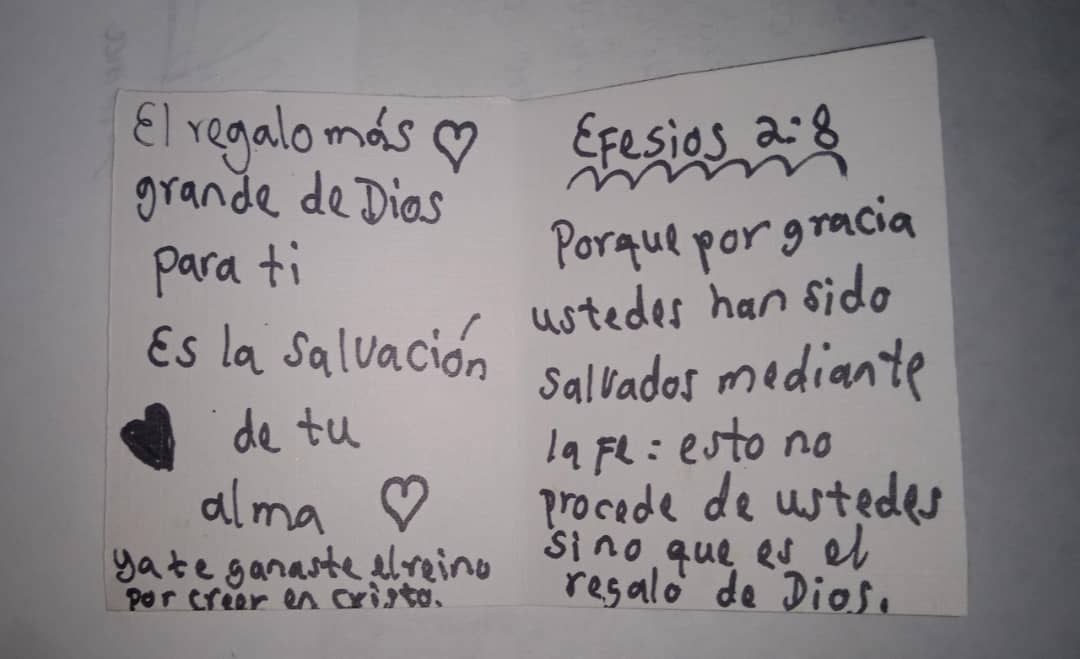 El regalo más
grande de Dios
para ti
Es la salvación
de tu
alma
ya te ganaste el reino
por creer en cristo.
Efesios 2:8
Porque por gracia
ustedes han sido
salvados mediante
la fe: esto no
procede de ustedes
sino que es el
regalo de Dios.